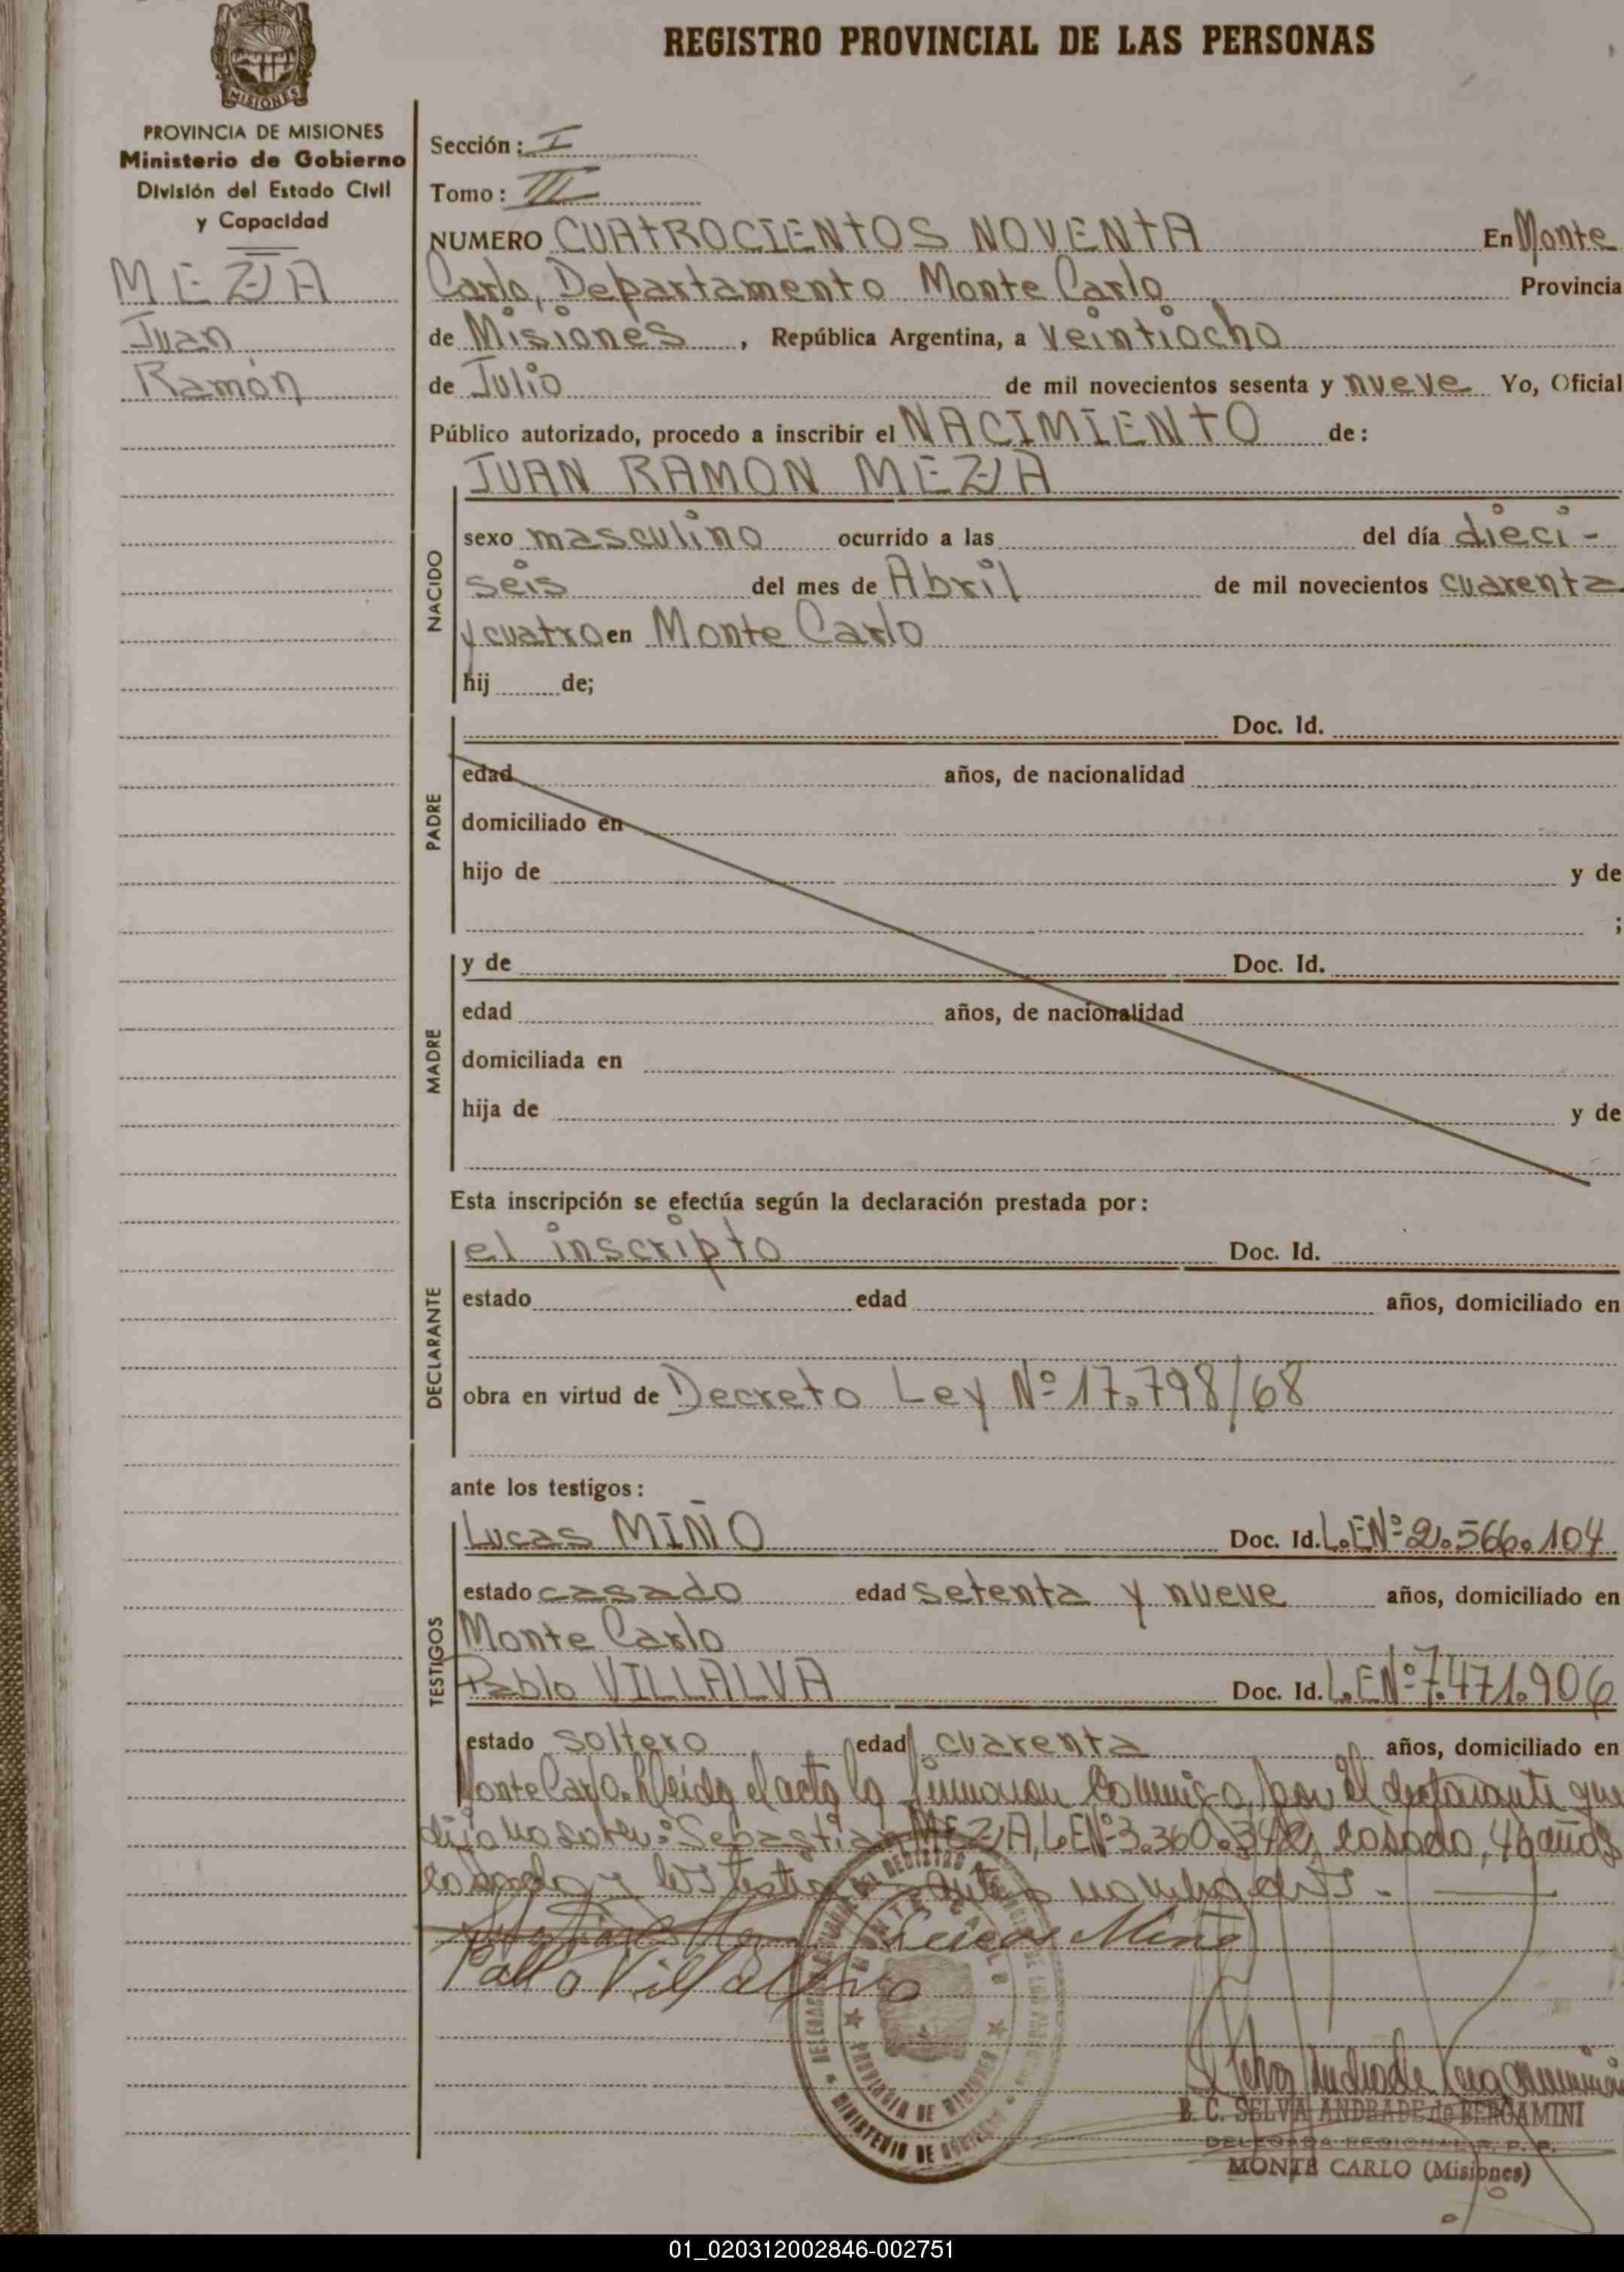 PROVINCIA DE
MISIONES
REGISTRO PROVINCIAL DE LAS PERSONAS
PROVINCIA DE MISIONES
Ministerio de Gobierno
División del Estado Civil
y Capacidad
MEZA
Juan
Ramón
Sección: I
Tomo: III
NUMERO CUATROCIENTOS NOVENTA En Monte
Carlo, Departamento Monte Carlo Provincia
de Misiones, República Argentina, a veintiocho
de Julio de mil novecientos sesenta y nueve Yo, Oficial
Público autorizado, procedo a inscribir el NACIMIENTO de:
JUAN RAMON MEZA
NACIDO
sexo masculino ocurrido a las del día dieci-
seis del mes de Abril de mil novecientos cuarenta
y cuatro en Monte Carlo
hij de;
PADRE
Doc. Id.
edad años, de nacionalidad
domiciliado en
hijo de y de
;
MADRE
y de Doc. Id.
edad años, de nacionalidad
domiciliada en
hija de y de
Esta inscripción se efectúa según la declaración prestada por:
DECLARANTE
el inscripto Doc. Id.
estado edad años, domiciliado en
obra en virtud de Decreto Ley Nº 17.798/68
ante los testigos:
TESTIGOS
Lucas MIÑO Doc. Id. L.E.Nº 2.566.104
estado casado edad setenta y nueve años, domiciliado en
Monte Carlo
Pablo VILLALVA Doc. Id. L.E.Nº 7.471.906
estado soltero edad cuarenta años, domiciliado en
Monte Carlo. Leída el acta la firman conmigo, por el declarante que
dijo no saber: Sebastian MEZA, L.E.Nº 3.360.342, casado, 46 años
casado y los testigos antes nombrados.-
Lucas Miño
Pablo Villalva
MONTE CARLO
PROVINCIA DE MISIONES
MINISTERIO DE GOBIERNO
B. C. SELVA ANDRADE de BERGAMINI
DELEGADA REGIONAL R. P. P.
MONTE CARLO (Misiones)
01_020312002846-002751